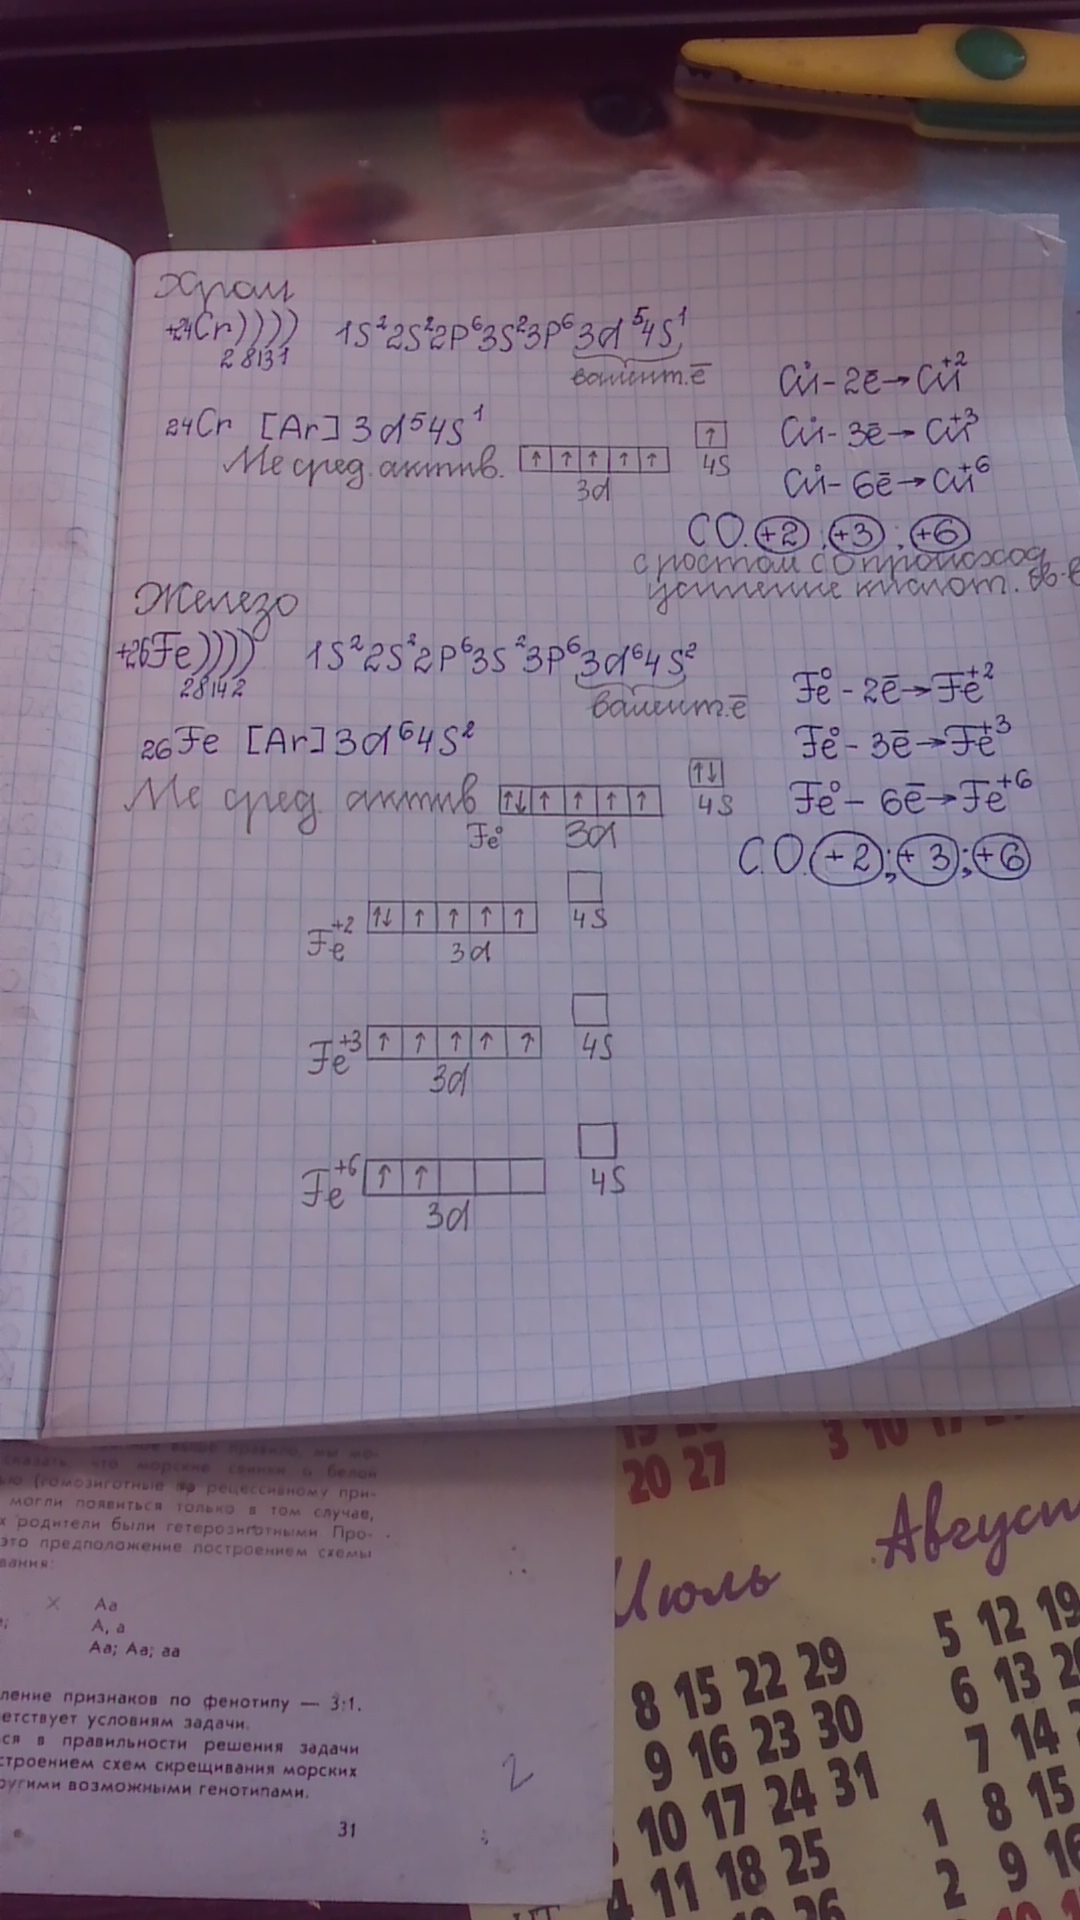 Хром
+24Cr)))) 1S²2S²2P⁶3S²3P⁶3d⁵4S¹
2 8 13 1
валент.ē
₂₄Cr [Ar]3d⁵4S¹
Ме сред. актив. ↑ ↑ ↑ ↑ ↑ ↑
3d 4S
Cr⁰ - 2ē → Cr⁺²
Cr⁰ - 3ē → Cr⁺³
Cr⁰ - 6ē → Cr⁺⁶
С.О. +2 ; +3 ; +6
с ростом СО происход
усиление кислот. св-в
Железо
+26Fe)))) 1S²2S²2P⁶3S²3P⁶3d⁶4S²
2 8 14 2
валент.ē
₂₆Fe [Ar]3d⁶4S²
Ме сред. актив ↑↓ ↑ ↑ ↑ ↑ ↑↓
Fe⁰ 3d 4S
Fe⁰ - 2ē → Fe⁺²
Fe⁰ - 3ē → Fe⁺³
Fe⁰ - 6ē → Fe⁺⁶
С.О. +2 ; +3 ; +6
Fe⁺² ↑↓ ↑ ↑ ↑ ↑
3d 4S
Fe⁺³ ↑ ↑ ↑ ↑ ↑
3d 4S
Fe⁺⁶ ↑ ↑
3d 4S
сказать, что морские свинки с белой
ью (гомозиготные по рецессивному при-
могли появиться только в том случае,
х родители были гетерозиготными. Про-
это предположение построением схемы
вания:
× Aa
A, a
Aa; Aa; aa
ление признаков по фенотипу — 3:1.
етствует условиям задачи.
ся в правильности решения задачи
строением схем скрещивания морских
ругими возможными генотипами.
31
2
20 27
3 10 17
Июль
8 15 22 29
9 16 23 30
10 17 24 31
11 18 25
Август
5 12 19
6 13
7 14
1 8 15
2 9